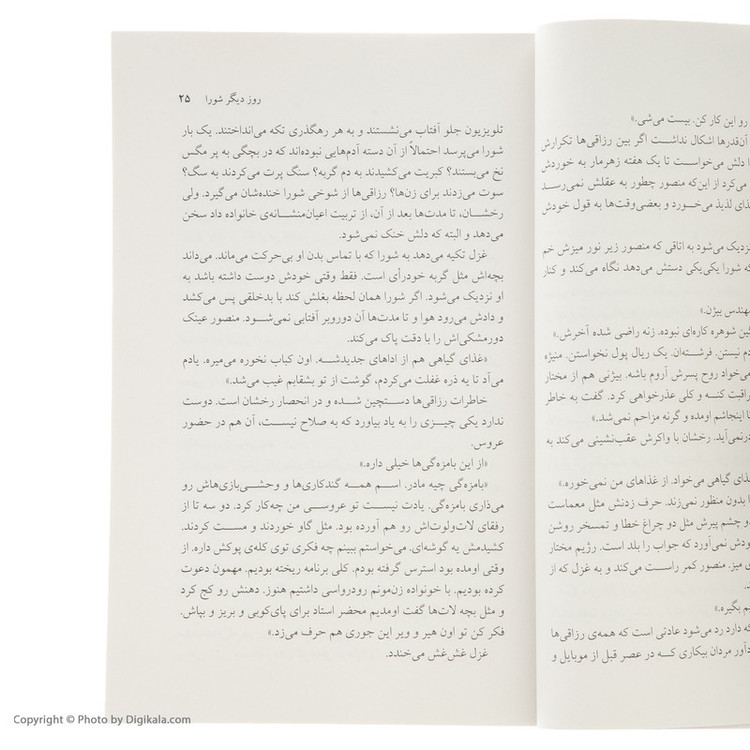 رو این کار کن. بیست می‌شی.»
آن‌قدرها اشکال نداشت اگر بین رزاقی‌ها تکرارش
دلش می‌خواست تا یک هفته زهرمار به خوردش
می‌کرد از این‌که منصور چطور به عقلش نمی‌رسد
ذای لذیذ می‌خورد و بعضی‌وقت‌ها به قول خودش
نزدیک می‌شود به اتاقی که منصور زیر نور میزش خم
که شورا یکی‌یکی دستش می‌دهد نگاه می‌کند و کنار
مهندس بیژن.»
گین شوهره کاره‌ای نبوده. زنه راضی شده آخرش.»
دم نیستن. فرشته‌ان. یک ریال پول نخواستن. منیژه
می‌خواد روح پسرش آروم باشه. بیژنی هم از مختار
راقبت کنه و کلی عذرخواهی کرد. گفت به خاطر
تا اینجاشم اومده و گرنه مزاحم نمی‌شد.»
درنمی‌آید. رخشان با واکرش عقب‌نشینی می‌کند به
ذای گیاهی می‌خواد. از غذاهای من نمی‌خوره.»
بدون منظور نمی‌زند. حرف زدنش مثل معماست
و چشم پیرش مثل دو چراغ خطا و تمسخر روشن
ودش نمی‌آورد که جواب را بلد است. رژیم مختار
ی میز. منصور کمر راست می‌کند و به غزل که از
م بگیره.»
که دارد رد می‌شود عادتی است که همه‌ی رزاقی‌ها
دآور مردان بیکاری که در عصر قبل از موبایل و
روز دیگر شورا ۲۵
تلویزیون جلو آفتاب می‌نشستند و به هر رهگذری تکه می‌انداختند. یک بار
شورا می‌پرسد احتمالاً از آن دسته آدم‌هایی نبوده‌اند که در بچگی به پر مگس
نخ می‌بستند؟ کبریت می‌کشیدند به دم گربه؟ سنگ پرت می‌کردند به سگ؟
سوت می‌زدند برای زن‌ها؟ رزاقی‌ها از شوخی شورا خنده‌شان می‌گیرد. ولی
رخشان، تا مدت‌ها بعد از آن، از تربیت اعیان‌منشانه‌ی خانواده داد سخن
می‌دهد و البته که دلش خنک نمی‌شود.
غزل تکیه می‌دهد به شورا که با تماس بدن او بی‌حرکت می‌ماند. می‌داند
بچه‌اش مثل گربه خودرأی است. فقط وقتی خودش دوست داشته باشد به
او نزدیک می‌شود. اگر شورا همان لحظه بغلش کند با بدخلقی پس می‌کشد
و دادش می‌رود هوا و تا مدت‌ها آن دوروبر آفتابی نمی‌شود. منصور عینک
دورمشکی‌اش را با دقت پاک می‌کند.
«غذای گیاهی هم از اداهای جدیدشه. اون کباب نخوره می‌میره. یادم
می‌آد تا یه ذره غفلت می‌کردم، گوشت از تو بشقابم غیب می‌شد.»
خاطرات رزاقی‌ها دستچین شده و در انحصار رخشان است. دوست
ندارد یکی چیزی را به یاد بیاورد که به صلاح نیست، آن هم در حضور
عروس.
«از این بامزه‌گی‌ها خیلی داره.»
«بامزه‌گی چیه مادر. اسم همه گندکاری‌ها و وحشی‌بازی‌هاش رو
می‌ذاری بامزه‌گی. یادت نیست تو عروسی من چه‌کار کرد. دو سه تا از
رفقای لات‌ولوت‌اش رو هم آورده بود. مثل گاو خوردند و مست کردند.
کشیدمش یه گوشه‌ای. می‌خواستم ببینم چه فکری توی کله‌ی پوکش داره. از
وقتی اومده بود استرس گرفته بودم. کلی برنامه ریخته بودیم. مهمون دعوت
کرده بودیم. با خونواده زن‌مونم رودرواسی داشتیم هنوز. دهنش رو کج کرد
و مثل بچه لات‌ها گفت اومدیم محضر استاد برای پای‌کوبی و بریز و بپاش.
فکر کن تو اون هیر و ویر این جوری هم حرف می‌زد.»
غزل غش‌غش می‌خندد.
Copyright © Photo by Digikala.com